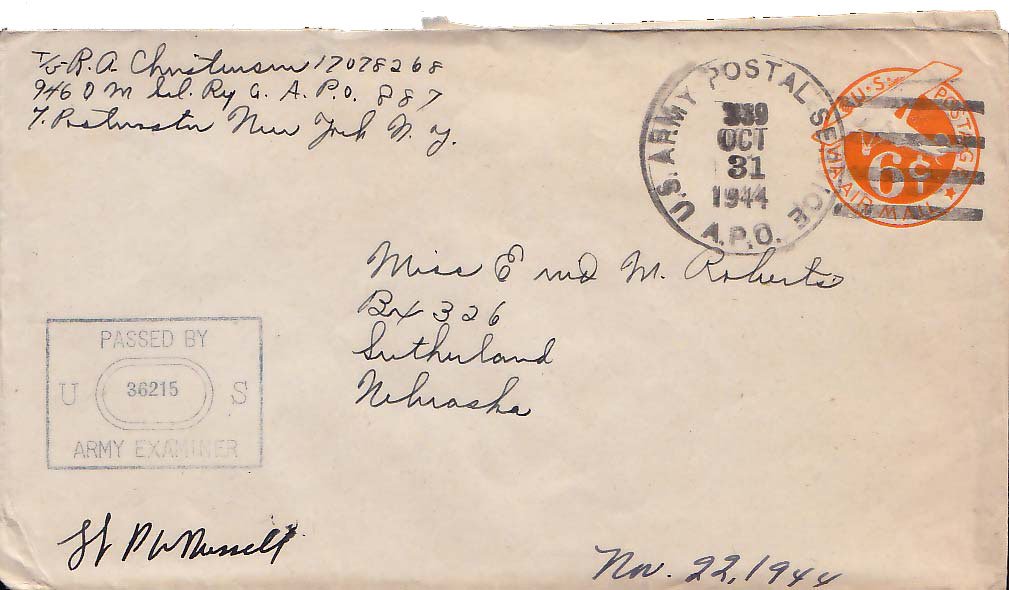 T/5 R.A. Christensen 17078268
946 O M Sal. Rep Co. A.P.O. 887
% Postmaster New York N.Y.
U.S. ARMY POSTAL SERVICE
A.P.O.
339
OCT
31
1944
U.S. POSTAGE
6¢
VIA AIR MAIL
Miss Enid M. Roberts
Box 326
Sutherland
Nebraska
PASSED BY
U 36215 S
ARMY EXAMINER
Lt P W Russell
Nov. 22, 1944